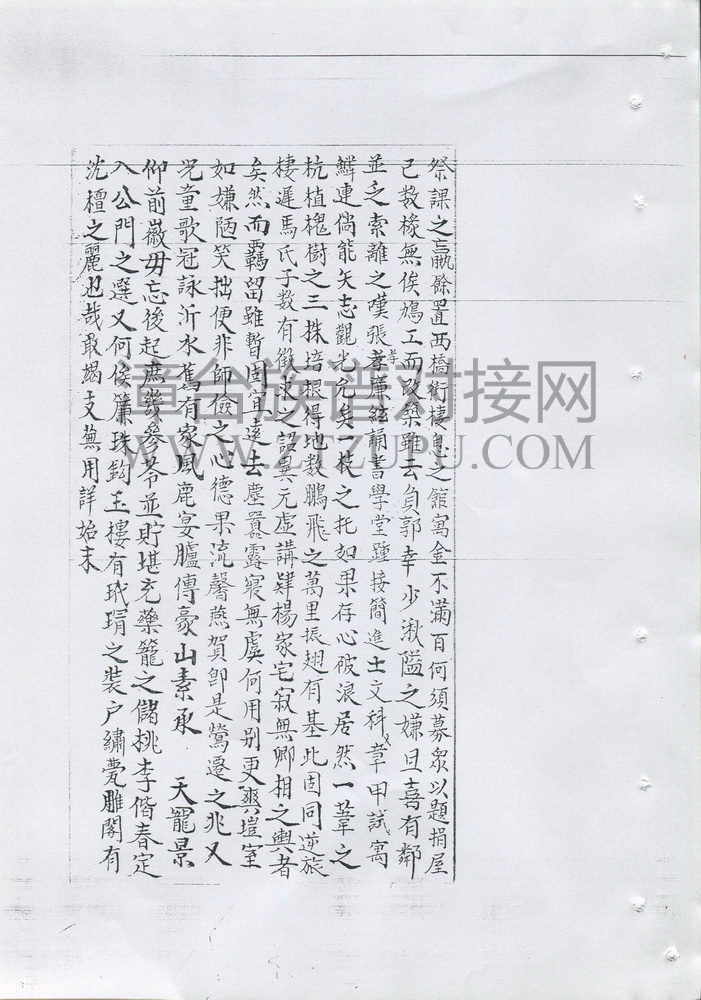 祭課之嬴餘置西橋衖棲息之館寓金不滿百何須募眾以題捐屋
已数椽無俟鳩工而改築雖云負郭幸少湫隘之嫌且喜有鄰
並乏索離之嘆張孝廉絃誦書學堂踵接簡進士文科章甲試寓
孝
鱗連倘能矢志觀光允矣一枝之托如果存心破浪居然一葦之
杭植槐樹之三株培根得地数鵬飛之萬里振翅有基此固同逆旅
棲遲馬氏子数有徵求之詔異元虛講肄楊家宅寂無卿相之輿者
矣然而羈留雖暫固宜遠去塵囂露寢無虞何用别更爽塏室
如嫌陋笑拙便非師儉之心德果流馨燕賀卽是鶯遷之兆又
况童歌冠詠沂水舊有家風鹿宴臚傳豪山素承 天寵景
仰前徽毋忘後起庶幾參苓並貯堪充藥籠之儲桃李偕春定
入公門之選又何俟簾珠鈎玉樓有玳瑁之裝户繡甍雕閣有
沈檀之麗也哉敢竭支蕪用詳始末
漳台族谱对接网
WWW.ZTZUPU.COM